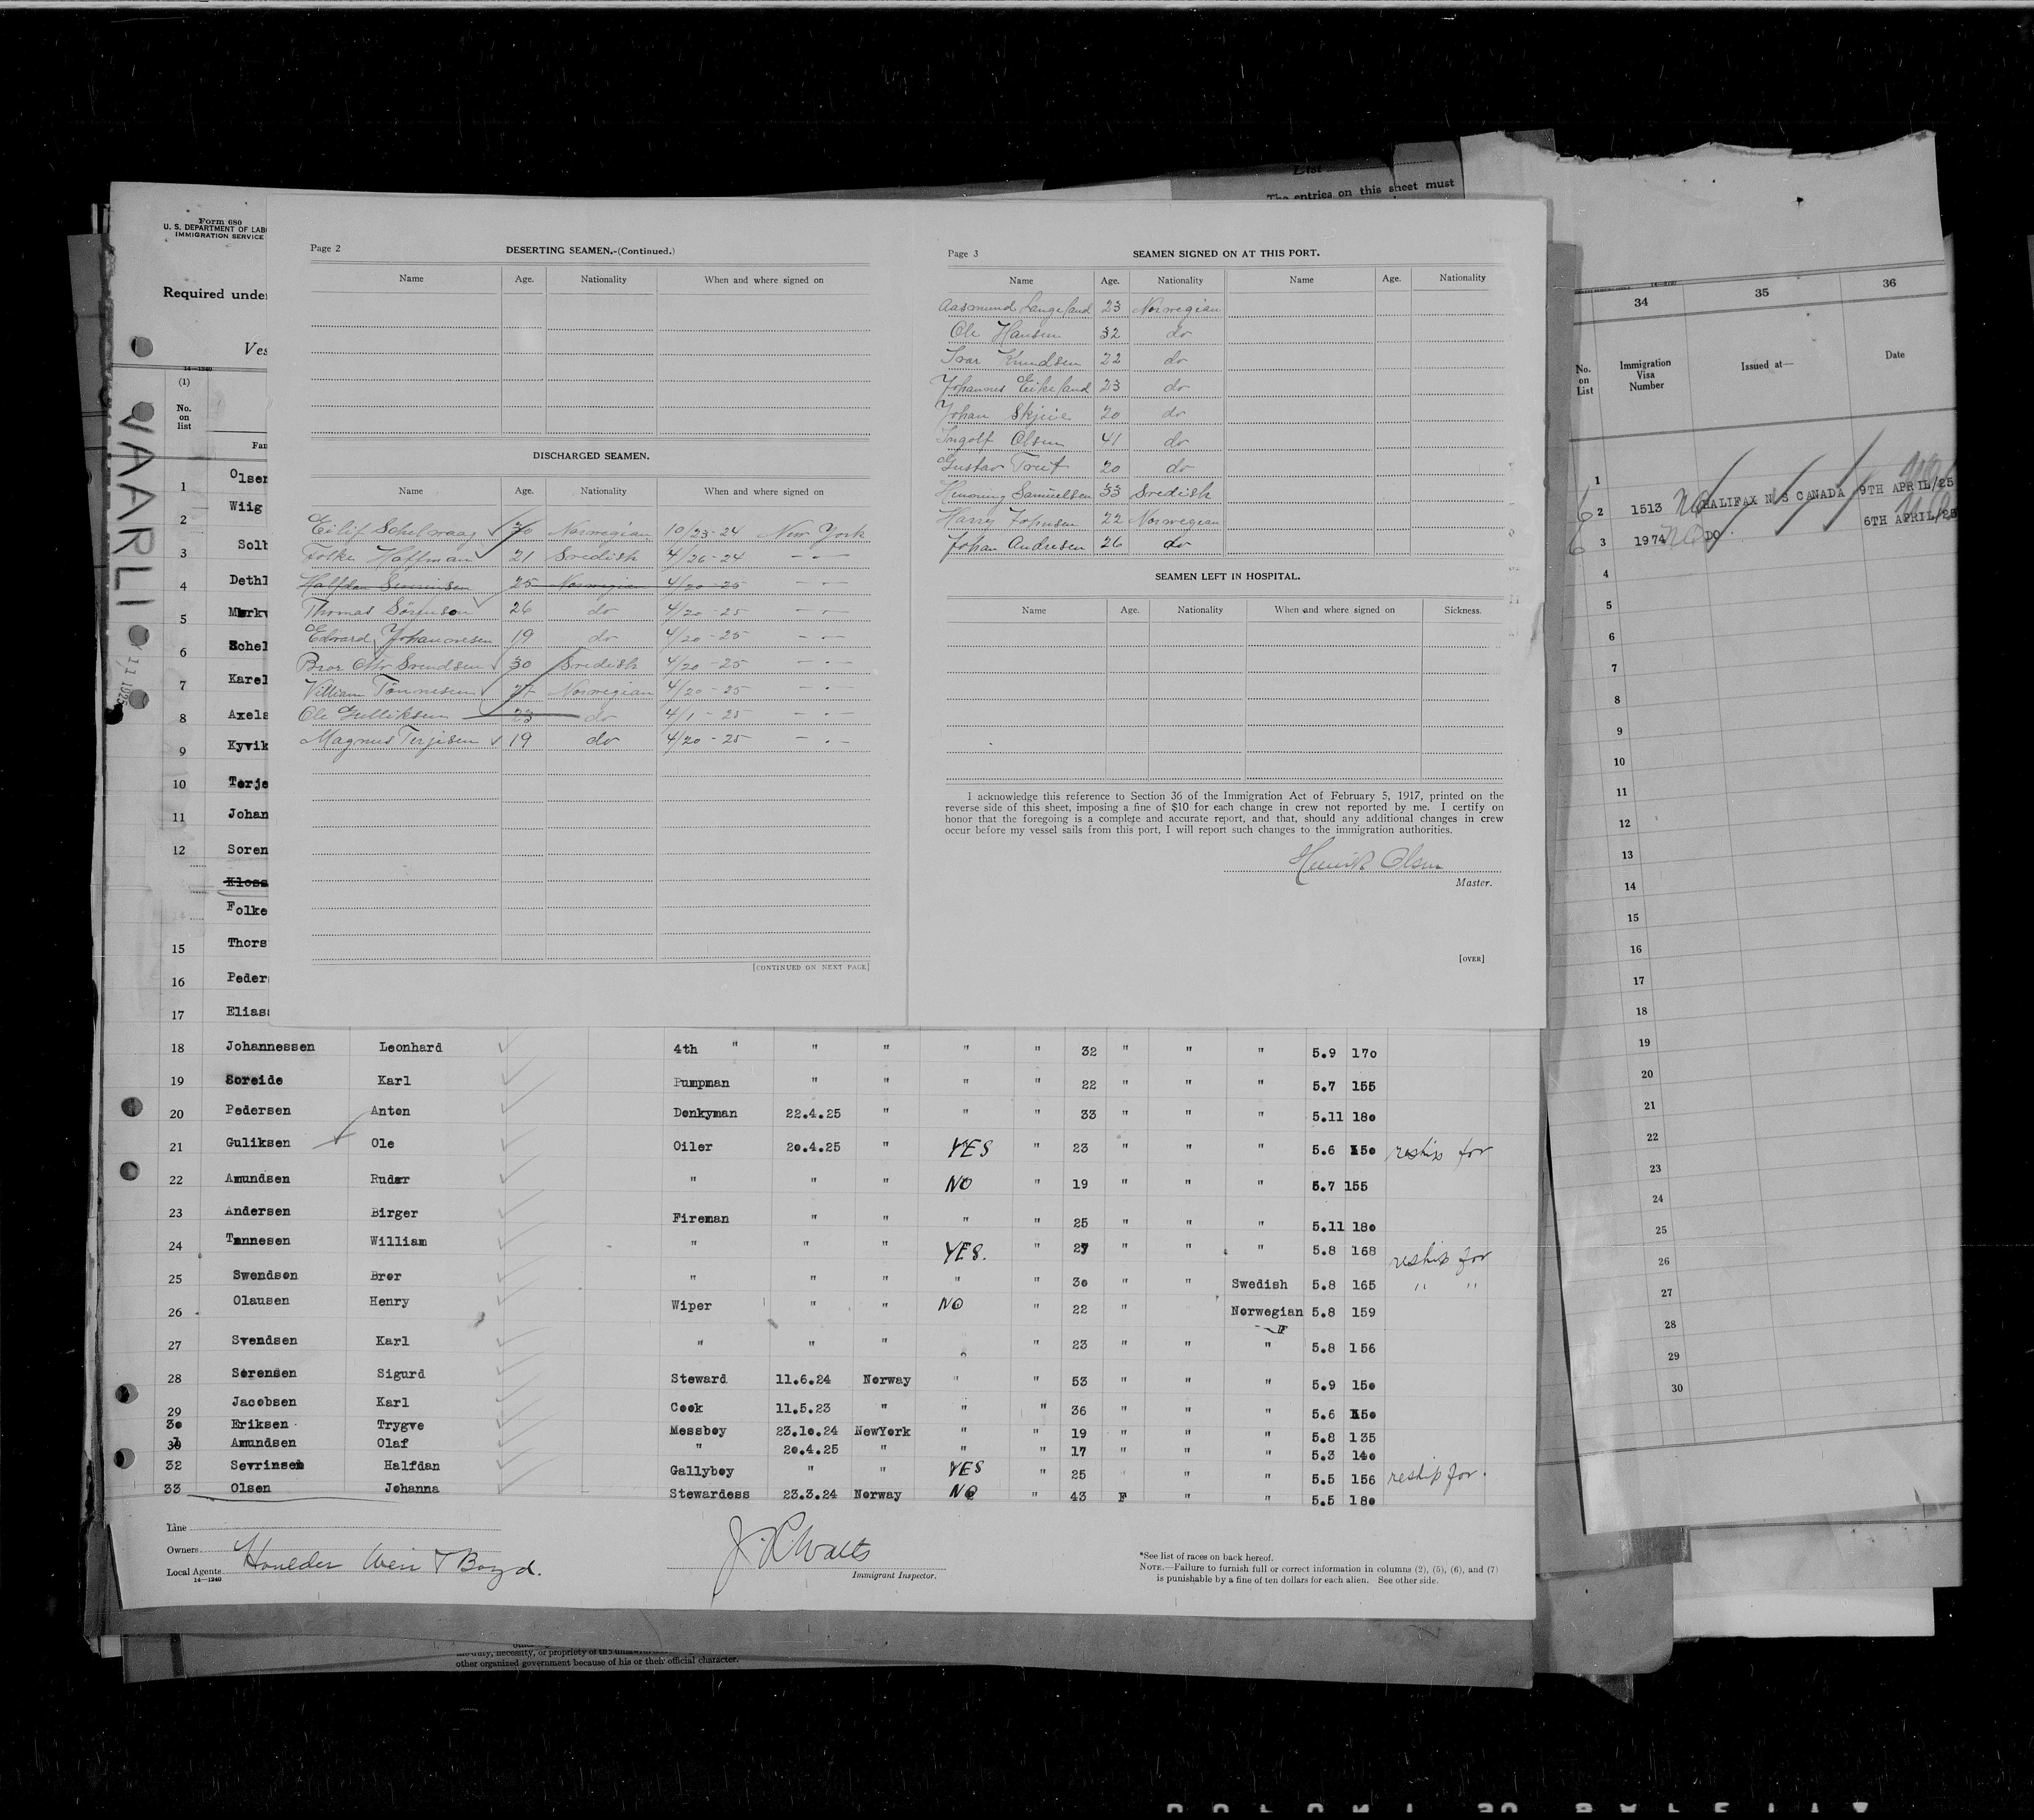 List
The entries on this sheet must
Form 680
U. S. DEPARTMENT OF LAB
IMMIGRATION SERVICE
Required unde
Ves
14—1240
(1)
No.
on
list
Fam
VAARLI
11 1925
1 Olsen
2 Wiig
3 Solb
4 Dethl
5 Markv
6 Schel
7 Karel
8 Axels
9 Kyvik
10 Terje
11 Johan
12 Soren
Kloss
Folke
15 Thors
16 Peder
17 Elias
Page 2
DESERTING SEAMEN.-(Continued.)
Name Age. Nationality When and where signed on
DISCHARGED SEAMEN.
Name Age. Nationality When and where signed on
Eilif Schelwaag 30 Norwegian 10/23-24 New York
Folke Hoffman 21 Swedish 4/26-24 — · —
Halfdan Sevrinsen 25 Norwegian 4/20-25 — · —
Thomas Sörenson 26 do 4/20-25 — · —
Edward Johannesen 19 do 4/20-25 — · —
Bror Svendsen 30 Swedish 4/20-25 — · —
Villiam Tönnesen 27 Norwegian 4/20-25 — · —
Ole Gulliksen 23 do 4/1-25 — · —
Magnus Terjesen 19 do 4/20-25 — · —
[CONTINUED ON NEXT PAGE]
Page 3
SEAMEN SIGNED ON AT THIS PORT.
Name Age. Nationality Name Age. Nationality
Aasmund Langeland 23 Norwegian
Ole Hansen 32 do
Ivar Knudsen 22 do
Johannes Eikeland 23 do
Johan Skjeie 20 do
Ingolf Olsen 41 do
Gustav 20 do
Henning Samuelsen 33 Swedish
Harry Johnsen 22 Norwegian
Johan Andresen 26 do
SEAMEN LEFT IN HOSPITAL.
Name Age. Nationality When and where signed on Sickness.
I acknowledge this reference to Section 36 of the Immigration Act of February 5, 1917, printed on the
reverse side of this sheet, imposing a fine of $10 for each change in crew not reported by me. I certify on
honor that the foregoing is a complete and accurate report, and that, should any additional changes in crew
occur before my vessel sails from this port, I will report such changes to the immigration authorities.
Henrik Olsen
Master.
[OVER]
18 Johannessen Leonhard 4th " " " " " 32 " " " 5.9 170
19 Soreide Karl Pumpman " " " " 22 " " " 5.7 155
20 Pedersen Anton Donkyman 22.4.25 " " " 33 " " " 5.11 180
21 Guliksen Ole Oiler 20.4.25 " YES " 23 " " " 5.6 150 reship for
22 Amundsen Rudar " " " NO " 19 " " " 5.7 155
23 Andersen Birger Fireman " " " " 25 " " " 5.11 180
24 Tennesen William " " " YES. " 27 " " " 5.8 168 reship for
25 Swendsen Bror " " " " " 30 " " Swedish 5.8 165 " "
26 Olausen Henry Wiper " " NO " 22 " Norwegian 5.8 159
27 Svendsen Karl " " " " 23 " " " 5.8 156
28 Sørensen Sigurd Steward 11.6.24 Norway " " 53 " " " 5.9 150
29 Jacobsen Karl Cook 11.5.23 " " " 36 " " " 5.6 150
30 Eriksen Trygve Messboy 23.10.24 NewYork " " 19 " " " 5.8 135
31 Amundsen Olaf " 20.4.25 " " " 17 " " " 5.3 140
32 Sevrinsen Halfdan Gallyboy " " YES " 25 " " 5.5 156 reship for.
33 Olsen Johanna Stewardess 23.3.24 Norway NO " 43 F " " 5.5 180
Line
Owners
Local Agents Houlder Weir & Boyd.
14—1240
J. R. Watts
Immigrant Inspector.
*See list of races on back hereof.
NOTE.—Failure to furnish full or correct information in columns (2), (5), (6), and (7)
is punishable by a fine of ten dollars for each alien. See other side.
duty, necessity, or propriety of
other organized government because of his or their official character.
34 35 36
No.
on
List
Immigration
Visa
Number
Issued at—
Date
1
2 1513 HALIFAX N S CANADA 9TH APRIL/25
3 1974 DO 6TH APRIL/25
4
5
6
7
8
9
10
11
12
13
14
15
16
17
18
19
20
21
22
23
24
25
26
27
28
29
30